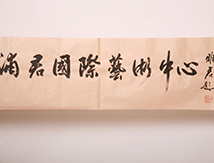 涌君國際藝術中心